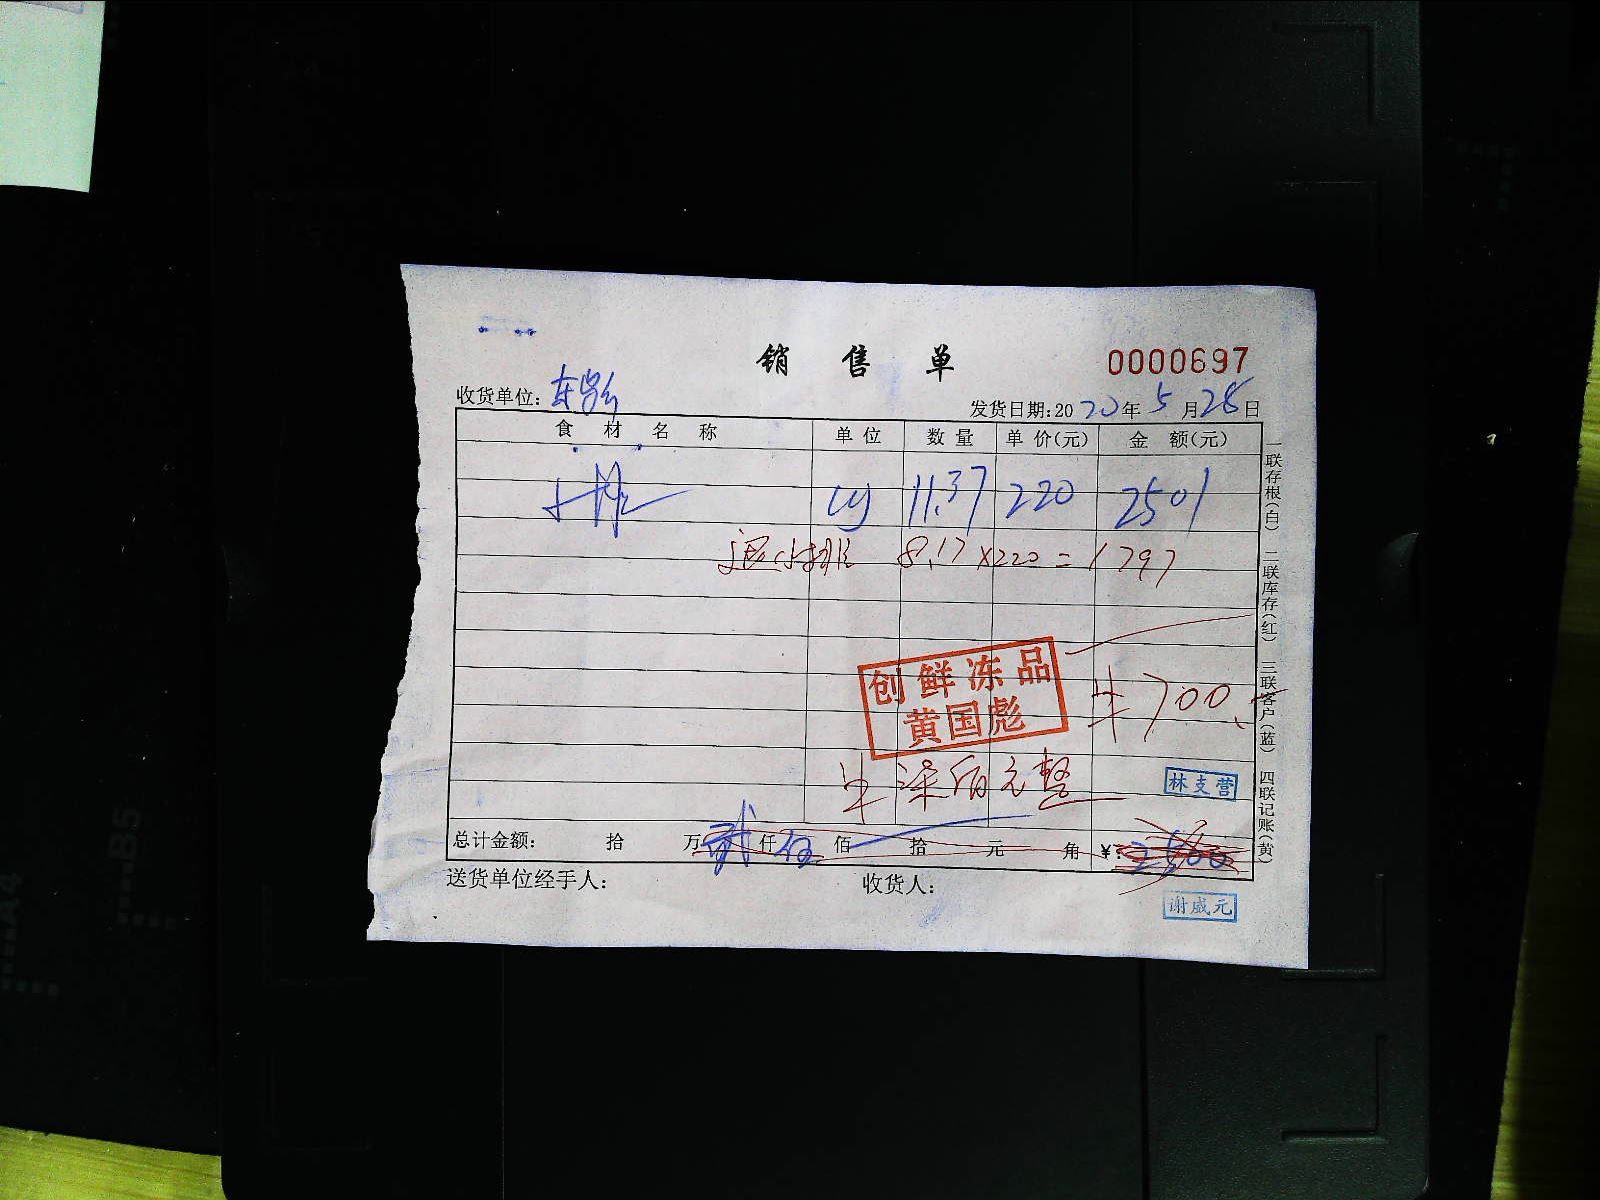 销 售 单
0000697
收货单位:
发货日期:2020年5月28日
食 材 名 称 单 位 数 量 单 价(元) 金 额(元)
小排 11.37 220 2501
退小排 8.17×220=1797
创鲜冻品
黄国彪
¥700.
柒佰元整
林支营
总计金额: 拾 万 贰 仟 伍 佰 拾 元 角 ¥:2500
送货单位经手人: 收货人:
谢成元
一联存根(白) 二联库存(红) 三联客户(蓝) 四联记账(黄)
B5
A4